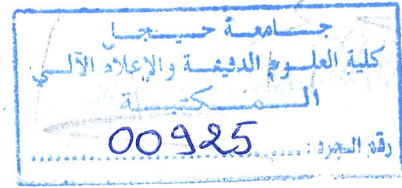 جامعة جيجل
كلية العلوم الدقيقة والإعلام الآلي
المكتبة
رقم الجرد : 00925